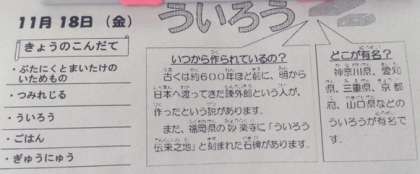 11月 18日 (金)
ういろう
きょうのこんだて
・ぶたにくとまいたけの
いためもの
・つみれじる
・ういろう
・ごはん
・ぎゅうにゅう
いつから作られているの？
古くは約600年ほど前に、明から
日本へ渡ってきた陳外郎という人が、
作ったという説があります。
また、福岡県の妙楽寺に「ういろう
伝来之地」と刻まれた石碑があります。
どこが有名？
神奈川県、愛知
県、三重県、京都
府、山口県などの
ういろうが有名で
す。